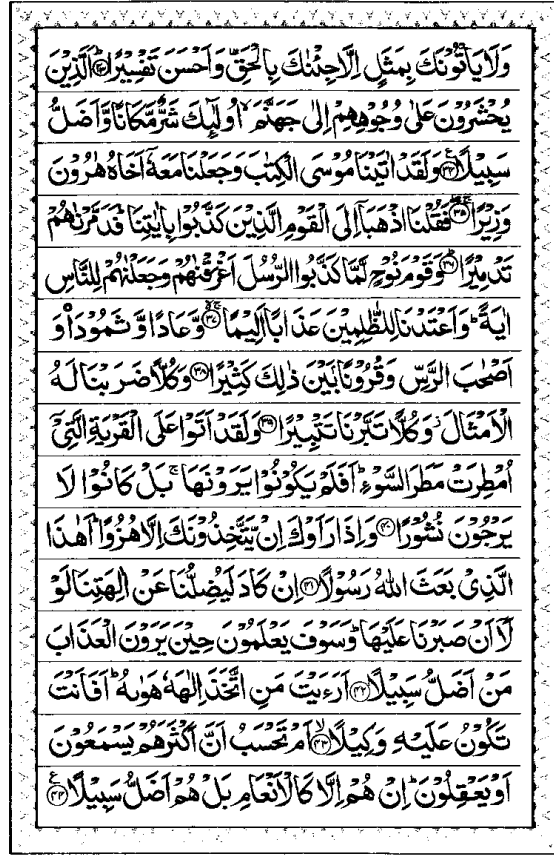 وَلَا يَاْتُوْنَكَ بِمَثَلٍ اِلَّا جِئْنٰكَ بِالْحَقِّ وَاَحْسَنَ تَفْسِيْرًا ۝۳۳ؕ اَلَّذِيْنَ
يُحْشَرُوْنَ عَلٰى وُجُوْهِهِمْ اِلٰى جَهَنَّمَ ۙ اُولٰٓئِكَ شَرٌّ مَّكَانًا وَّاَضَلُّ
سَبِيْلًا ۝۳۴ۧ وَلَقَدْ اٰتَيْنَا مُوْسَى الْكِتٰبَ وَجَعَلْنَا مَعَهٗٓ اَخَاهُ هٰرُوْنَ
وَزِيْرًا ۝۳۵ۚۖ فَقُلْنَا اذْهَبَآ اِلَى الْقَوْمِ الَّذِيْنَ كَذَّبُوْا بِاٰيٰتِنَا ؕ فَدَمَّرْنٰهُمْ
تَدْمِيْرًا ۝۳۶ؕ وَقَوْمَ نُوْحٍ لَّمَّا كَذَّبُوا الرُّسُلَ اَغْرَقْنٰهُمْ وَجَعَلْنٰهُمْ لِلنَّاسِ
اٰيَةً ؕ وَاَعْتَدْنَا لِلظّٰلِمِيْنَ عَذَابًا اَلِيْمًا ۝۳۷ۚۖ وَّعَادًا وَّثَمُوْدَا۟ وَ
اَصْحٰبَ الرَّسِّ وَقُرُوْنًۢا بَيْنَ ذٰلِكَ كَثِيْرًا ۝۳۸ وَكُلًّا ضَرَبْنَا لَهُ
الْاَمْثَالَ ۡ وَكُلًّا تَبَّرْنَا تَتْبِيْرًا ۝۳۹ وَلَقَدْ اَتَوْا عَلَى الْقَرْيَةِ الَّتِيْٓ
اُمْطِرَتْ مَطَرَ السَّوْءِ ؕ اَفَلَمْ يَكُوْنُوْا يَرَوْنَهَا ۚ بَلْ كَانُوْا لَا
يَرْجُوْنَ نُشُوْرًا ۝۴۰ وَاِذَا رَاَوْكَ اِنْ يَّتَّخِذُوْنَكَ اِلَّا هُزُوًا ؕ اَهٰذَا
الَّذِيْ بَعَثَ اللّٰهُ رَسُوْلًا ۝۴۱ اِنْ كَادَ لَيُضِلُّنَا عَنْ اٰلِهَتِنَا لَوْ
لَآ اَنْ صَبَرْنَا عَلَيْهَا ؕ وَسَوْفَ يَعْلَمُوْنَ حِيْنَ يَرَوْنَ الْعَذَابَ
مَنْ اَضَلُّ سَبِيْلًا ۝۴۲ اَرَءَيْتَ مَنِ اتَّخَذَ اِلٰهَهٗ هَوٰىهُ ؕ اَفَاَنْتَ
تَكُوْنُ عَلَيْهِ وَكِيْلًا ۝۴۳ۙ اَمْ تَحْسَبُ اَنَّ اَكْثَرَهُمْ يَسْمَعُوْنَ
اَوْ يَعْقِلُوْنَ ؕ اِنْ هُمْ اِلَّا كَالْاَنْعَامِ بَلْ هُمْ اَضَلُّ سَبِيْلًا ۝۴۴ۧ